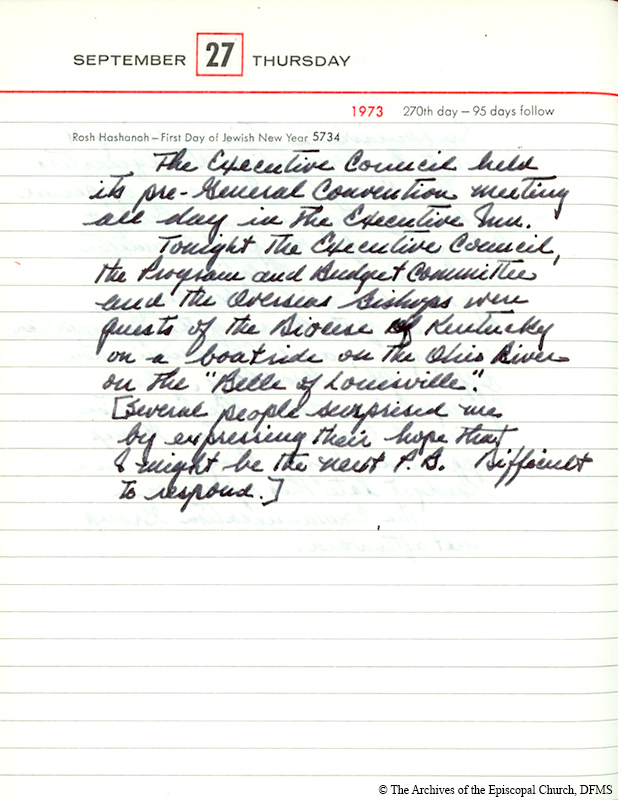 SEPTEMBER 27 THURSDAY
1973 270th day — 95 days follow
Rosh Hashanah — First Day of Jewish New Year 5734
The Executive Council held
its pre-General Convention meeting
all day in the Executive Inn.
Tonight the Executive Council,
the Program and Budget Committee
and the Overseas Bishops were
guests of the Diocese of Kentucky
on a boatride on the Ohio River
on the "Belle of Louisville".
[Several people surprised me
by expressing their hope that
I might be the next P.B. Difficult
to respond.]
© The Archives of the Episcopal Church, DFMS